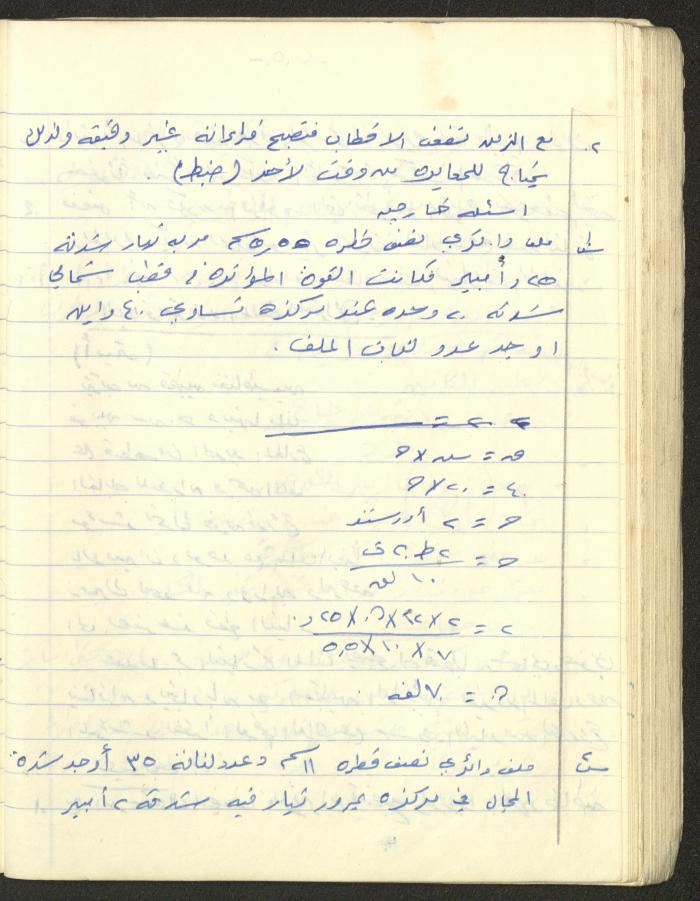 ٢. مع الزمن تضعف الاقطاب فتصبح قراءاته غير دقيقه ولذلك
يحتاج للمعايره من وقت لآخر (ضبط).
اسئله خارجيه
س١ ملف دائري نصف قطره ٥٫٥ سم مر به تيار شدته
٢٥ر أمبير فكانت القوة المؤثرة في قطب شمالي
شدته ٢٠ وحده عند مركزه تساوي ٤٠ داين
اوجد عدد لفات الملف.
ق = س × ح
٤٠ = ٢٠ × ح
ح = ٢ أورستد
ح = ٢ ط ن ت
١٠ نق
٢ = ٢ × ٢٢ × ن × ٢٥ر٠
٧ × ١٠ × ٥٫٥
ن = ٧٠ لفه
س٢ ملف دائري نصف قطره ١١ سم وعدد لفاته ٣٥ أوجد شدة
المجال في مركزه بمرور تيار فيه شدته ٢ أمبير